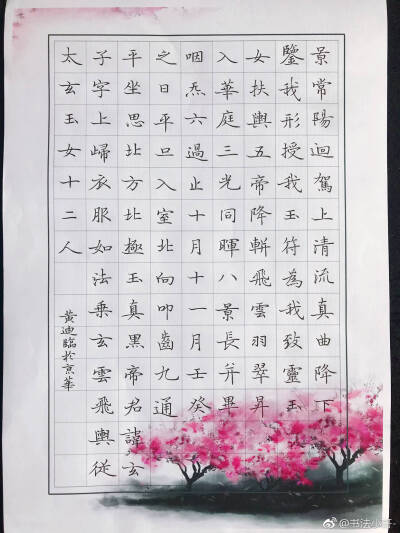 景常陽迴駕上清流真曲降下
鑒我形授我玉符為我致靈玉
女扶輿五帝降軿飛雲羽翠昇
入華庭三光同暉八景長并畢
咽炁六過止十月十一月壬癸
之日平旦入室北向叩齒九通
平坐思北方北極玉真黑帝君諱玄
子字上歸衣服如法乘玄雲飛輿從
太玄玉女十二人
黃迪臨於京華
@书法小哥-